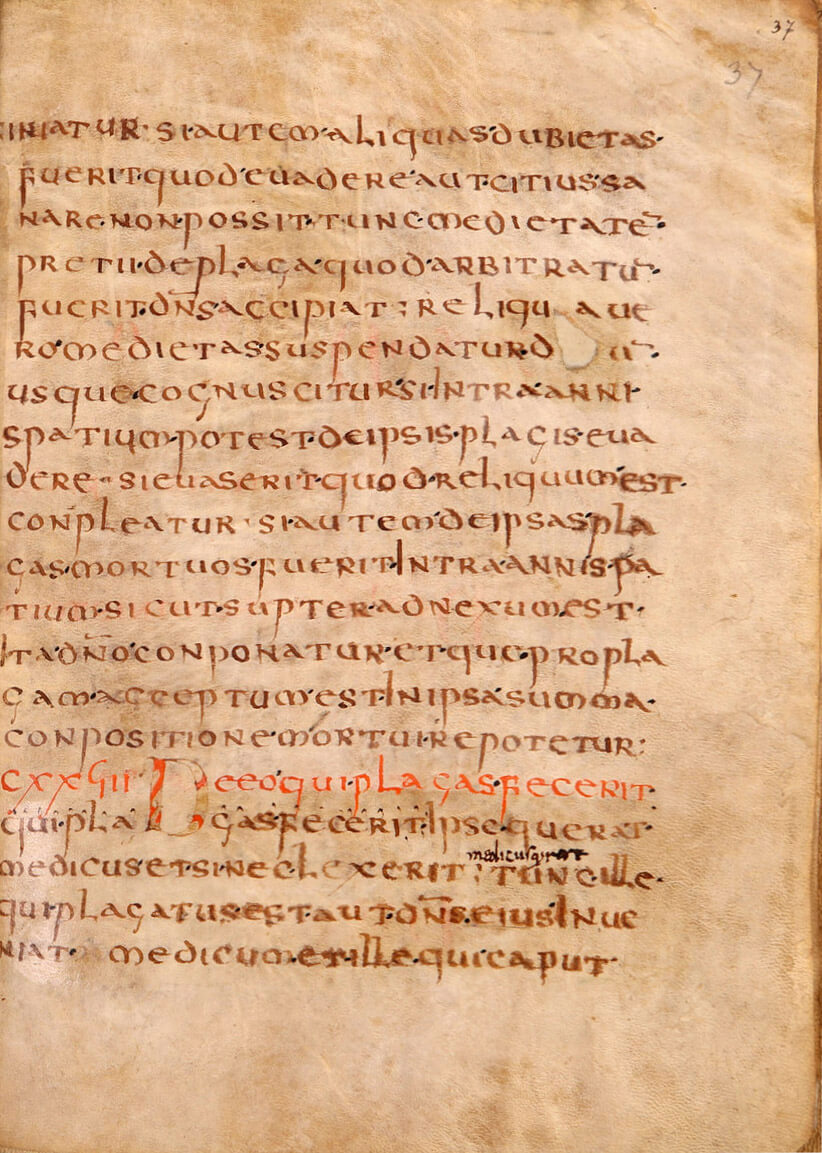 37
37
INIATUR· SI·AUTEM·ALIQUAS·DUBIETAS·
FUERIT·QUOD·EUADERE·AUT·CITIUS·SA
NARE·NON·POSSIT·TUNC·MEDIETATE̅·
PRETII·DE·PLAGA·QUOD·ARBITRATU̅·
FUERIT·DN̅S·ACCIPIAT; RELIQUA UE
RO·MEDIETAS·SUSPENDATUR·D U̅·
USQUE·COGNUSCITUR·SI·INTRA·ANNI·
SPATIUM·POTEST·DE·IPSIS·PLAGIS·EUA
DERE· SI·EUASERIT·QUOD·RELIQUUM·EST·
CONPLEATUR· SI·AUTEM·DE·IPSAS·PLA
GAS·MORTUOS·FUERIT·INTRA·ANNI·SPA
TIUM·SICUT·SUPTER·ADNEXUM·EST·
ITA·DN̅O·CONPONATUR·ET·QUE·PRO·PLA
GAM·ACCEPTUM·EST·IN·IPSA·SUMMA·
CONPOSITIONE·MORTUI·REPOTETUR;
CXXVIII DE EO·QUI·PLAGAS·FECERIT·
QUI·PLAGAS·FECERIT·IPSE·QUERAT·
MEDICUS·ET·SI·NEGLEXERIT; TUNC·ILLE·
QUI·PLAGATUS·EST·AUT·DN̅S·EIUS·INUE
NIAT· MEDICUM·ET·ILLE·QUI·CAPUT·